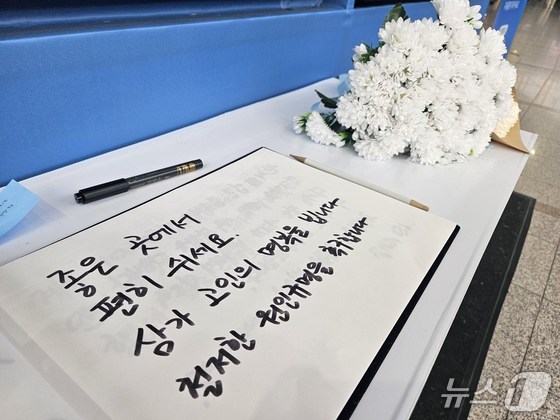 좋은 곳에서
편히 쉬세요.
삼가 고인의 명복을 빕니다
철저한 원인규명을 촉구합니다
뉴스1